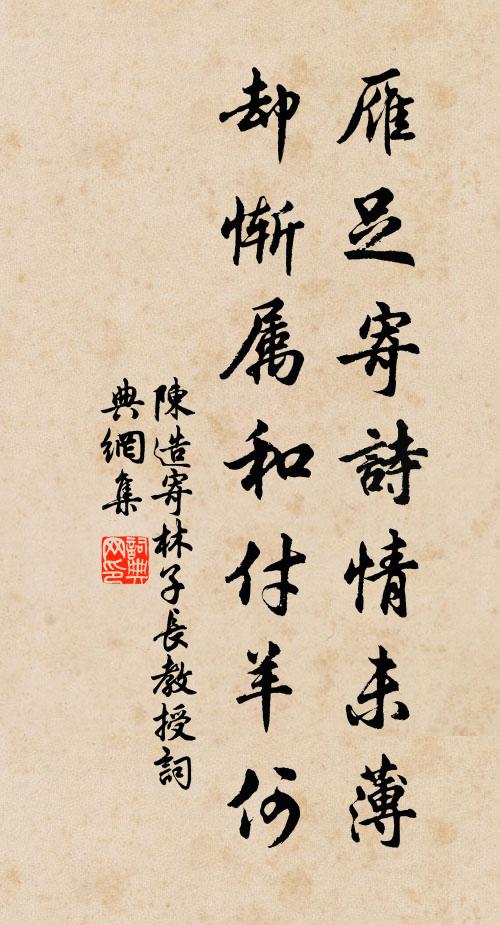 雁足寄詩情未薄
却慚属和付羊何
陳造寄林子長教授詞
典網集
詞典網印